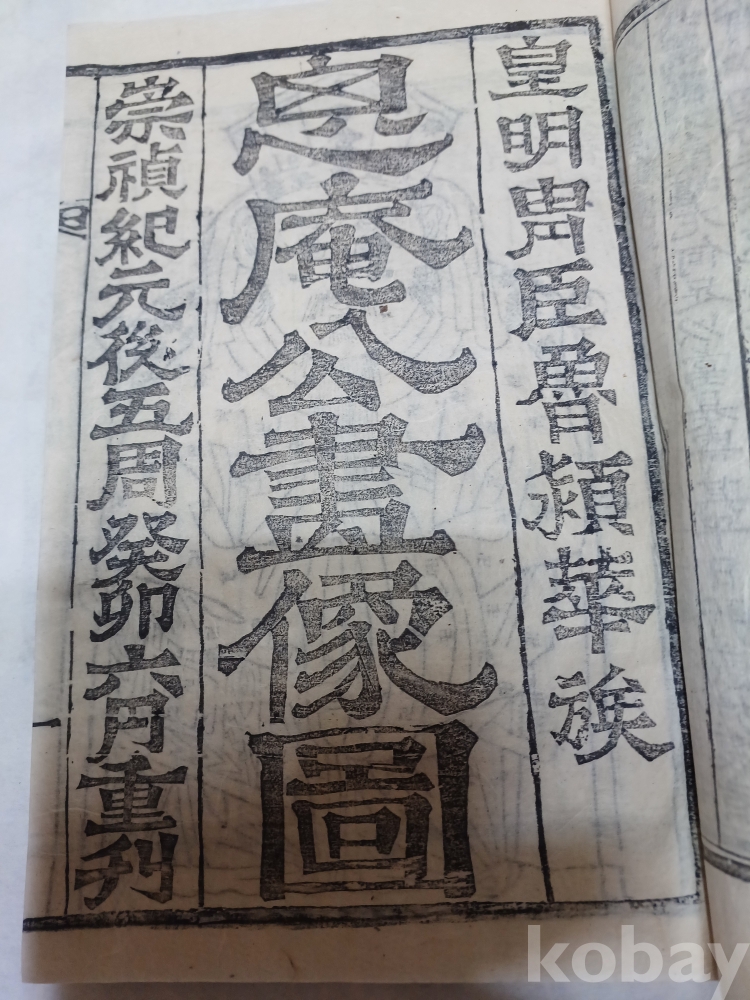 皇明冑臣魯潁華族
思庵公畫像圖
崇禎紀元後五周癸卯六月重刊
一
kobay